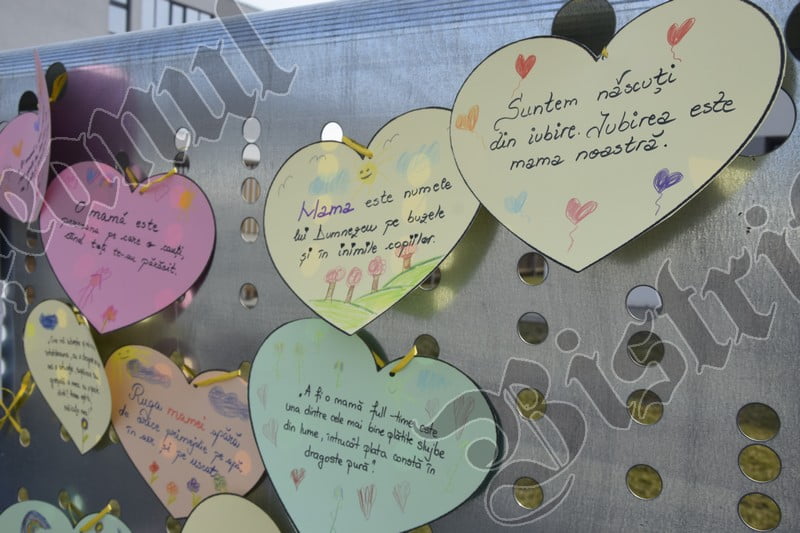 Suntem născuți
din iubire. Iubirea este
mama noastră.
Mama este numele
lui Dumnezeu pe buzele
și în inimile copiilor.
O mamă este
persoana pe care o cauți,
când toți te-au părăsit.
„A fi o mamă full-time este
una dintre cele mai bine plătite slujbe
din lume, întrucât plata constă în
dragoste pură".
Ruga mamei
de aduce primejdie pe apă,
în aer și pe uscat.
Bistri